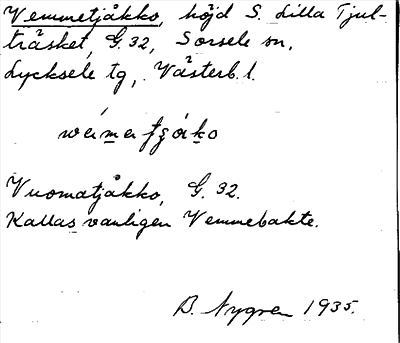 Vemmetjåkko, höjd S. Lilla Tjul-
träsket, G. 32, Sorsele sn,
Lycksele tg, Västerb. l.
Vuomatjåkko, G. 32.
Kallas vanligen Vemmebakte.
B. Nygren 1935.